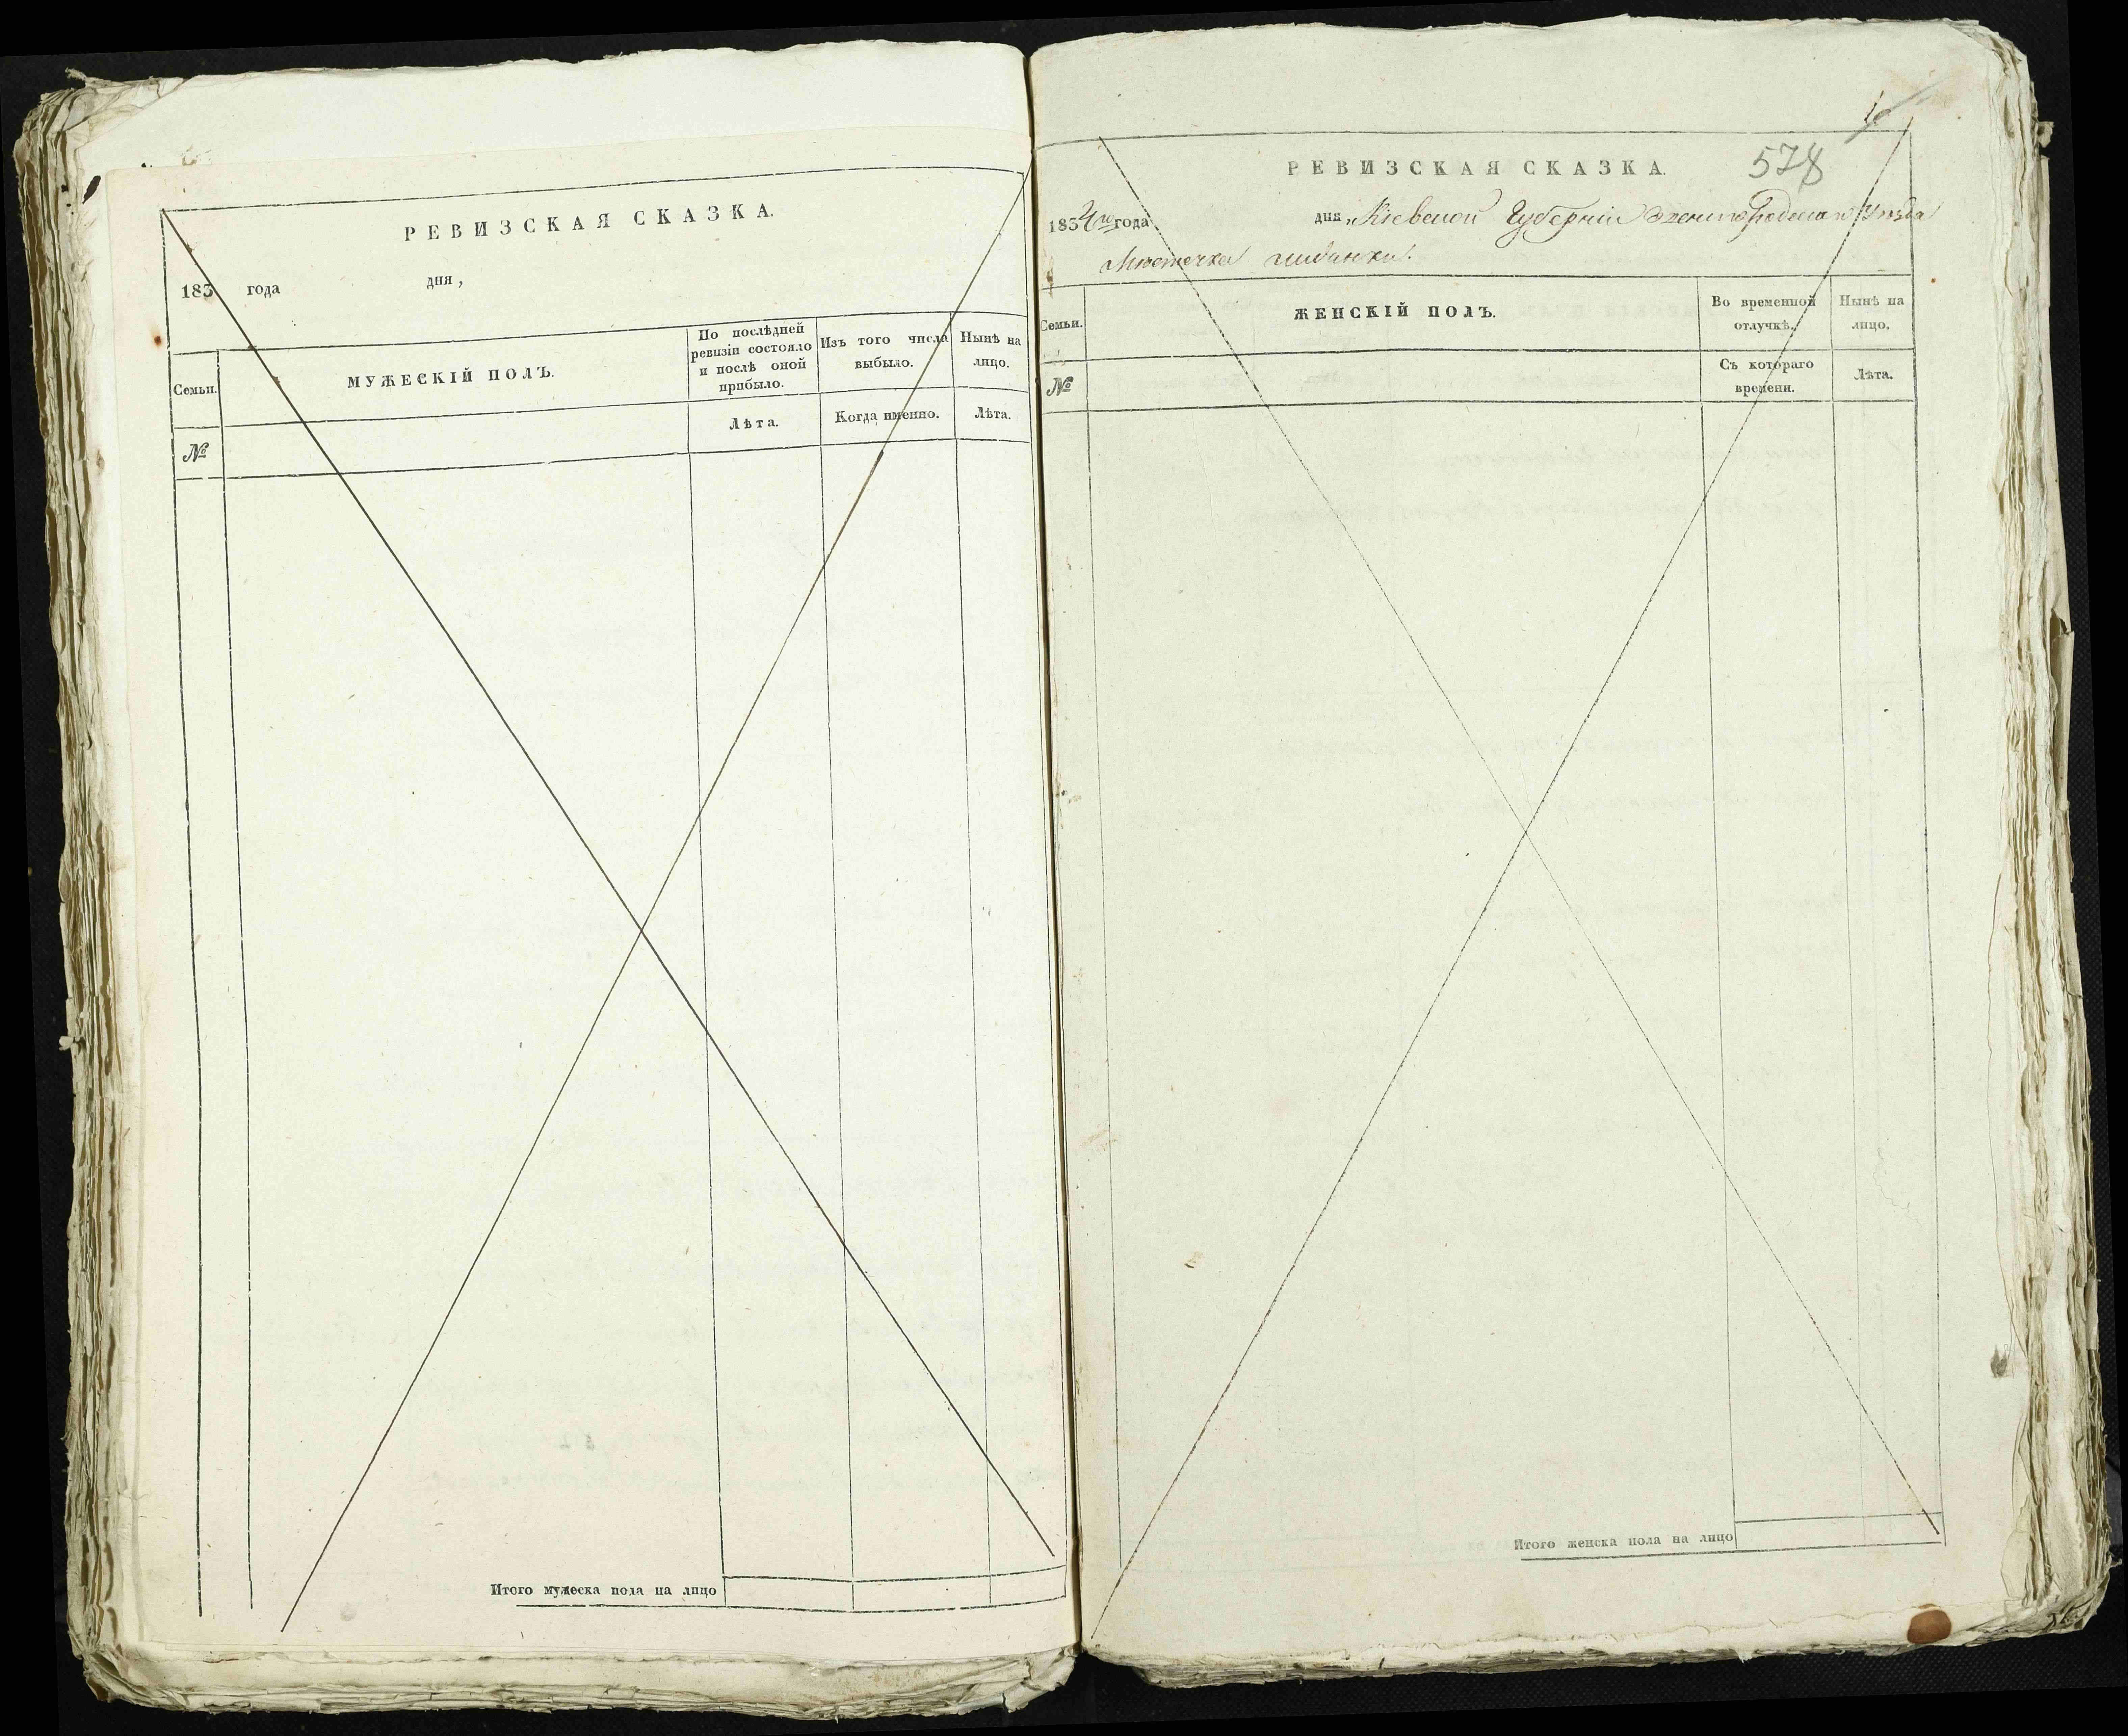 РЕВИЗСКАЯ СКАЗКА.
183 года дня,
Семьи.
МУЖЕСКІЙ ПОЛЪ.
По послѣдней ревизіи состояло и послѣ оной прибыло.
Изъ того числа выбыло.
Нынѣ на лицо.
№
Лѣта.
Когда именно.
Лѣта.
Итого мужеска пола на лицо
578
РЕВИЗСКАЯ СКАЗКА.
1834го года дня, Кіевской Губерніи Звенигородскаго Уѣзда
Мѣстечка
Семьи.
ЖЕНСКІЙ ПОЛЪ.
Во временной отлучкѣ.
Нынѣ на лицо.
№
Съ котораго времени.
Лѣта.
Итого женска пола на лицо